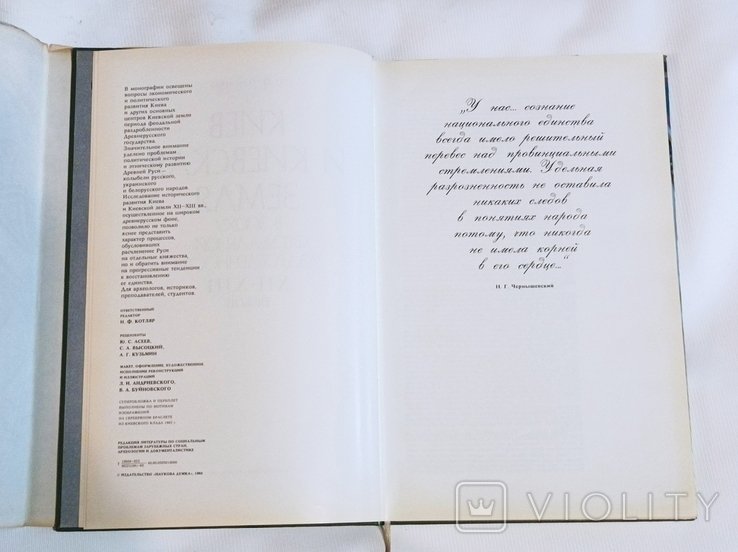 В монографии освещены
вопросы экономического
и политического
развития Киева
и других основных
центров Киевской земли
периода феодальной
раздробленности
Древнерусского
государства.
Значительное внимание
уделено проблемам
политической истории
и этническому развитию
Древней Руси —
колыбели русского,
украинского
и белорусского народов.
Исследование исторического
развития Киева
и Киевской земли XII—XIII вв.,
осуществленное на широком
древнерусском фоне,
позволило не только
яснее представить
характер процессов,
обусловивших
расчленение Руси
на отдельные княжества,
но и обратить внимание
на прогрессивные тенденции
к восстановлению
ее единства.
Для археологов, историков,
преподавателей, студентов.
ОТВЕТСТВЕННЫЙ
РЕДАКТОР
Н. Ф. КОТЛЯР
РЕЦЕНЗЕНТЫ
Ю. С. АСЕЕВ,
С. А. ВЫСОЦКИЙ,
А. Г. КУЗЬМИН
МАКЕТ, ОФОРМЛЕНИЕ, ХУДОЖЕСТВЕННОЕ
ИСПОЛНЕНИЕ РЕКОНСТРУКЦИЙ
И ИЛЛЮСТРАЦИЙ
Л. И. АНДРИЕВСКОГО,
В. А. БУЙНОВСКОГО
СУПЕРОБЛОЖКА И ПЕРЕПЛЕТ
ВЫПОЛНЕНЫ ПО МОТИВАМ
ИЗОБРАЖЕНИЙ
НА СЕРЕБРЯНОМ БРАСЛЕТЕ
ИЗ КИЕВСКОГО КЛАДА
РЕДАКЦИЯ ЛИТЕРАТУРЫ ПО СОЦИАЛЬНЫМ
ПРОБЛЕМАМ ЗАРУБЕЖНЫХ СТРАН,
АРХЕОЛОГИИ И ДОКУМЕНТАЛИСТИКЕ
© ИЗДАТЕЛЬСТВО «НАУКОВА ДУМКА»,
„У нас... сознание
национального единства
всегда имело решительный
перевес над провинциальными
стремлениями. Удельная
разрозненность не оставила
никаких следов
в понятиях народа
потому, что никогда
не имела корней
в его сердце..."
Н. Г. Чернышевский
VIOLITY